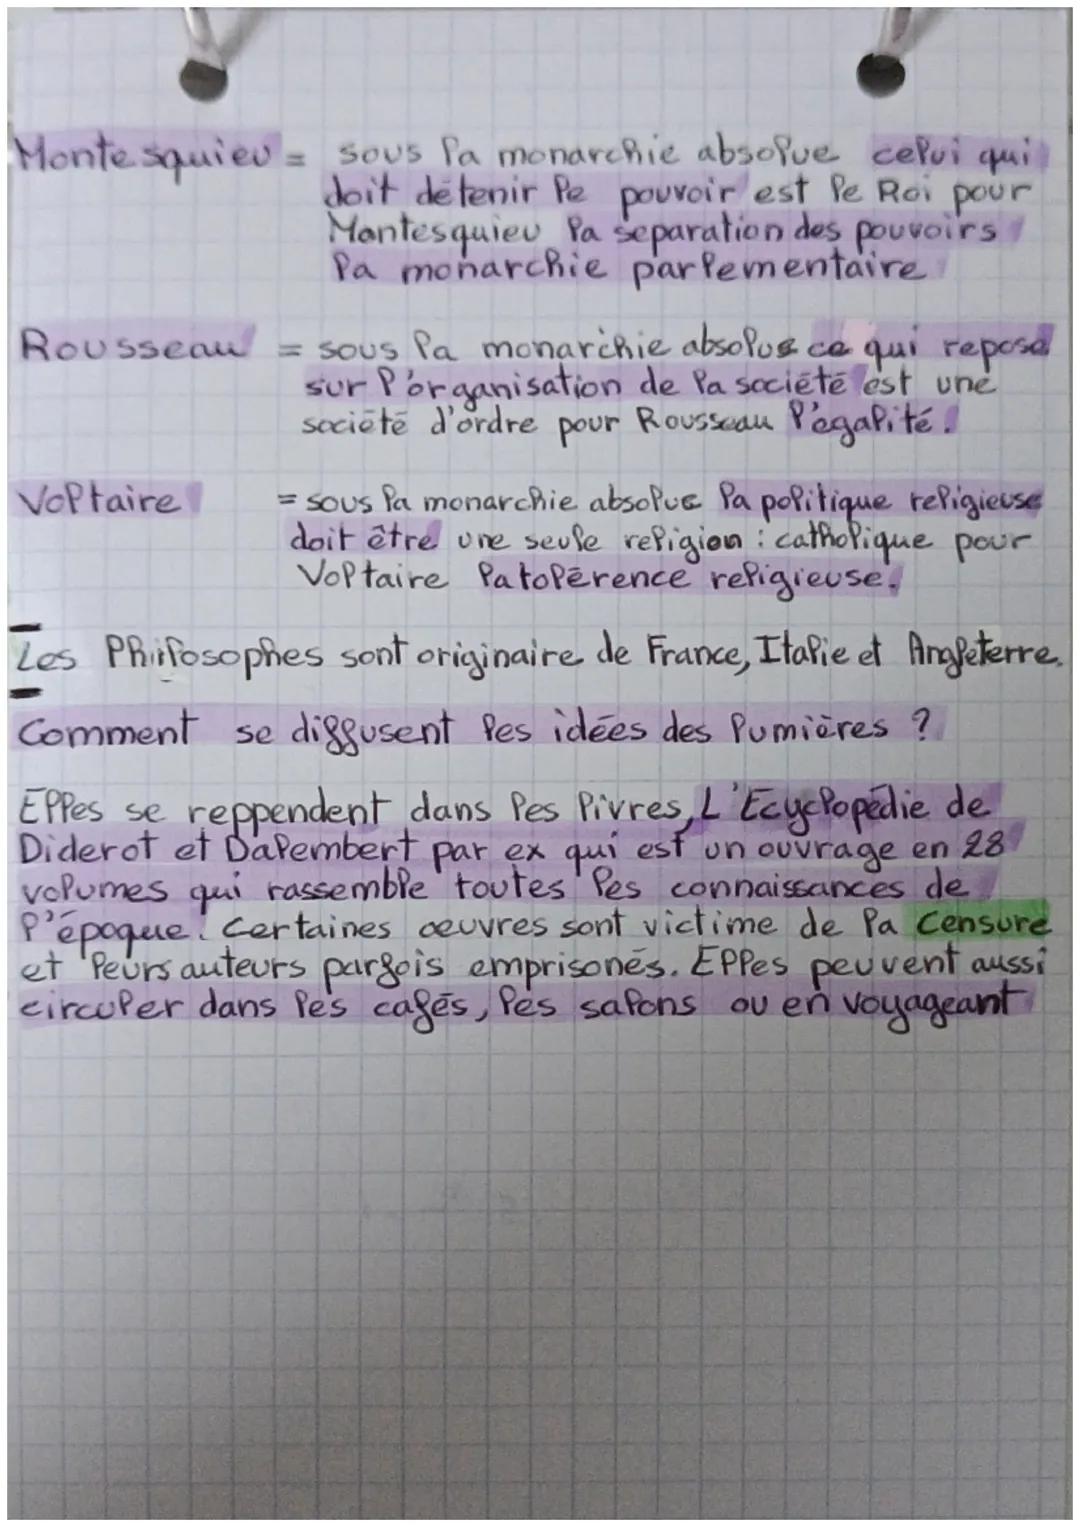 Montesquieu = sous la monarchie absolue celui qui
doit détenir le pouvoir est le Roi pour
Montesquieu la séparation des pouvoirs
la monarchie parlementaire
Rousseau = sous la monarchie absolue ce qui repose
sur l'organisation de la société est une
société d'ordre pour Rousseau l'égalité.
Voltaire = sous la monarchie absolue la politique religieuse
doit être une seule religion : catholique pour
Voltaire la tolérence religieuse.
Les Philosophes sont originaire de France, Italie et Angleterre.
Comment se diffusent les idées des lumières ?
Elles se reppendent dans les livres, L'Ecyclopédie de
Diderot et Dalembert par ex qui est un ouvrage en 28
volumes qui rassemble toutes les connaissances de
l'époque. Certaines oeuvres sont victime de la censure
et leurs auteurs parfois emprisonés. Elles peuvent aussi
circuler dans les cafés, les salons ou en voyageant